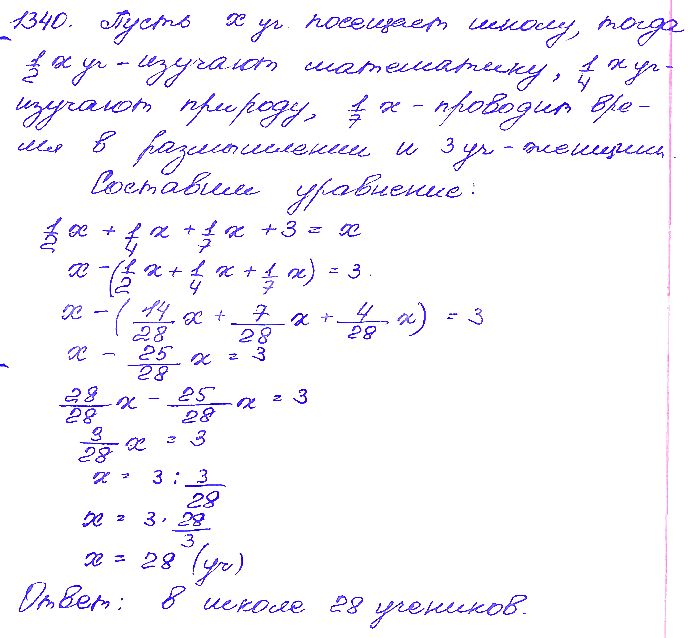 1340. Пусть x уч. посещает школу, тогда
1/2 x уч - изучают математику, 1/4 x уч-
изучают природу, 1/7 x - проводит вре-
мя в размышлении и 3 уч - женщины.
Составим уравнение:
1/2 x + 1/4 x + 1/7 x + 3 = x
x - (1/2 x + 1/4 x + 1/7 x) = 3.
x - (14/28 x + 7/28 x + 4/28 x) = 3
x - 25/28 x = 3
28/28 x - 25/28 x = 3
3/28 x = 3
x = 3 : 3/28
x = 3 · 28/3
x = 28 (уч)
Ответ: в школе 28 учеников.